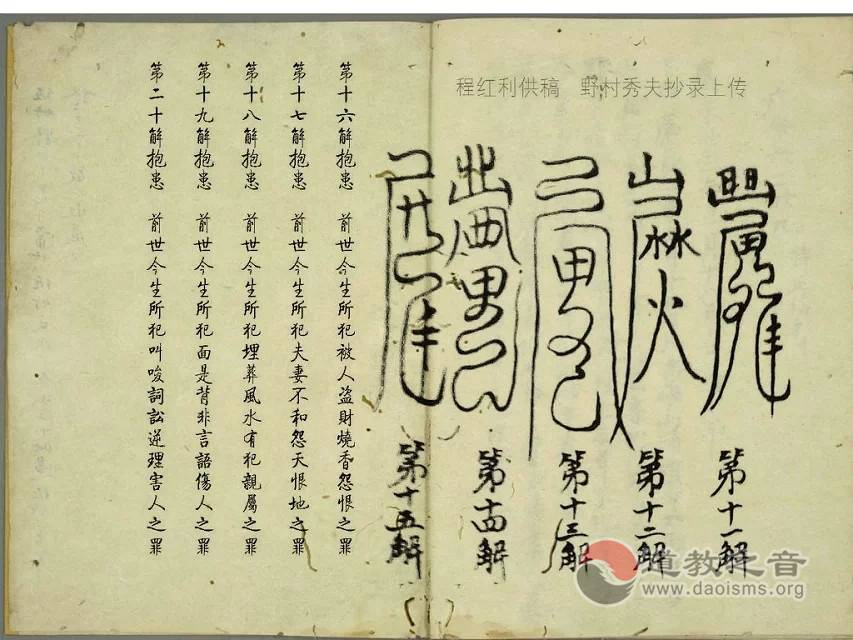 程红利供稿 野村秀夫抄录上传
第十一解
第十二解
第十三解
第十四解
第十五解
第十六解抱患 前世今生所犯被人盗財燒香怨恨之罪
第十七解抱患 前世今生所犯夫妻不和怨天恨地之罪
第十八解抱患 前世今生所犯埋葬風水有犯親屬之罪
第十九解抱患 前世今生所犯面是背非言語傷人之罪
第二十解抱患 前世今生所犯叫唆詞訟逆理害人之罪
道教之音
www.daoisms.org